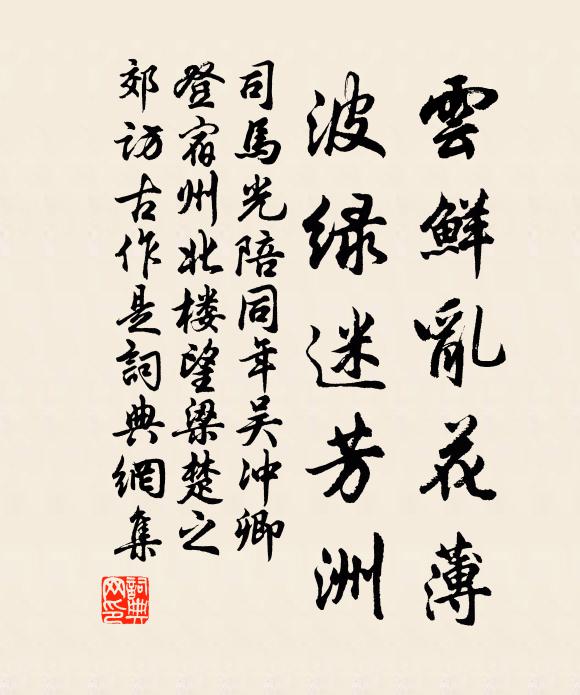 雲鮮亂花薄
波緑迷芳洲
司馬光陪同年吴沖卿
登宿州北楼望梁楚之
郊訪古作是詞典網集
詞典網印